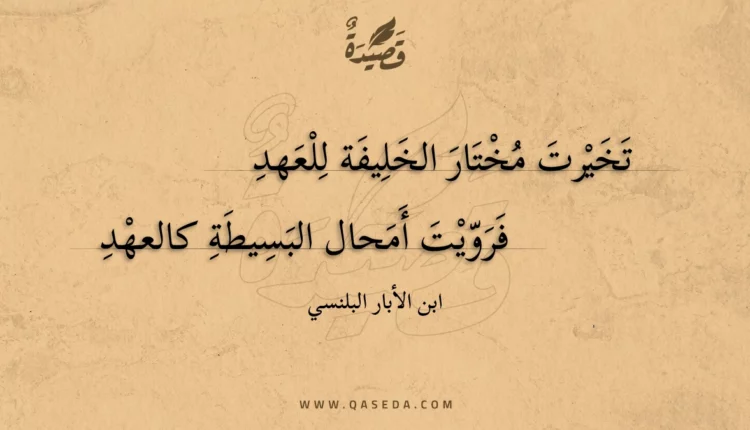 قَصِيْدَةٌ
تَخَيْرتَ مُخْتَارَ الخَلِيفَة لِلْعَهدِ
فَرَوّيْتَ أَمَحال البَسِيطَةِ كالعهْدِ
ابن الأبار البلنسي
WWW.QASEDA.COM